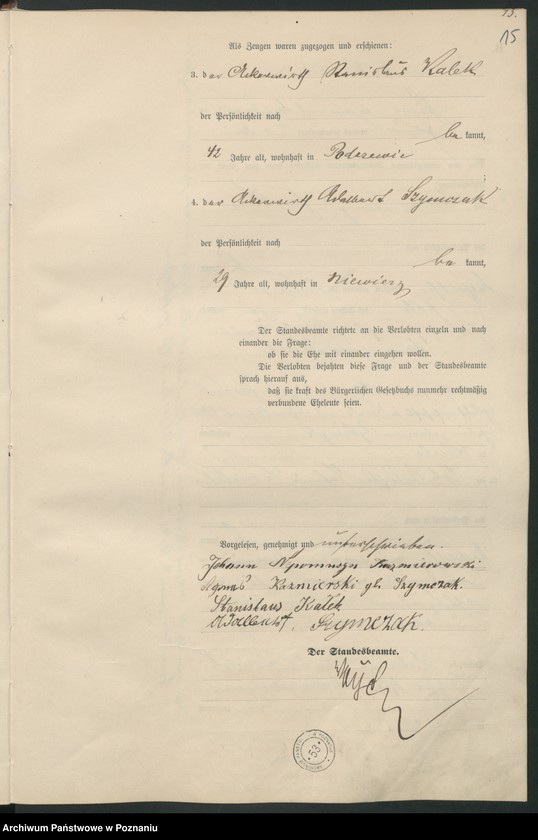 15
Als Zeugen waren zugezogen und erschienen:
3. der Ackerwirth Stanislaus Kalek
der Persönlichkeit nach
be kannt,
42 Jahre alt, wohnhaft in Podrzewie
4. der Ackerwirth Adalbert Szymczak
der Persönlichkeit nach
be kannt,
29 Jahre alt, wohnhaft in Niewierz
Der Standesbeamte richtete an die Verlobten einzeln und nach
einander die Frage:
ob sie die Ehe mit einander eingehen wollen.
Die Verlobten bejahten diese Frage und der Standesbeamte
sprach hierauf aus,
daß sie kraft des Bürgerlichen Gesetzbuchs nunmehr rechtmäßig
verbundene Eheleute seien.
Vorgelesen, genehmigt und unterschrieben.
Johann
Agnes Kazmierski gb. Szymczak.
Stanislaus Kałek
Adalbert. Szymczak.
Der Standesbeamte.
53
Archiwum Państwowe w Poznaniu